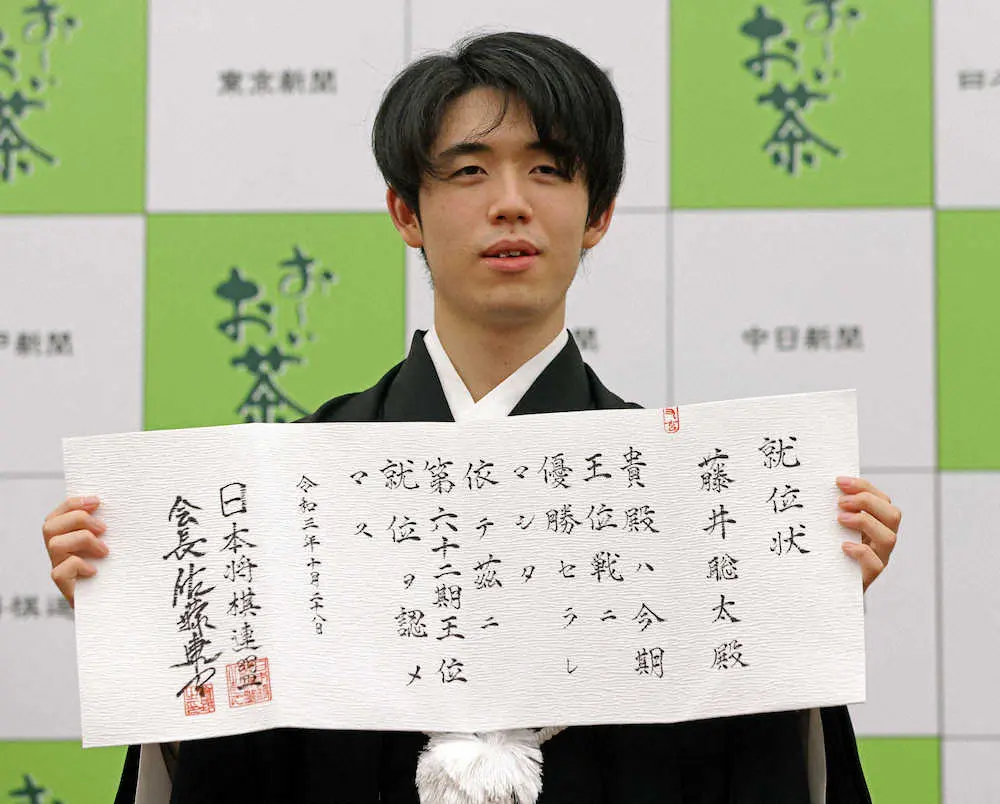 就位状
藤井聡太殿
貴殿ハ今期
王位戦ニ
優勝セラレ
マシタ
依テ茲ニ
第六十二期王位
就位ヲ認メ
マス
令和三年十月二十八日
日本将棋連盟
会長佐藤康光
お～い
お茶
東京新聞
お～い
お茶
日本
戸新聞
お～い
お茶
聞
中日新聞
将棋
お